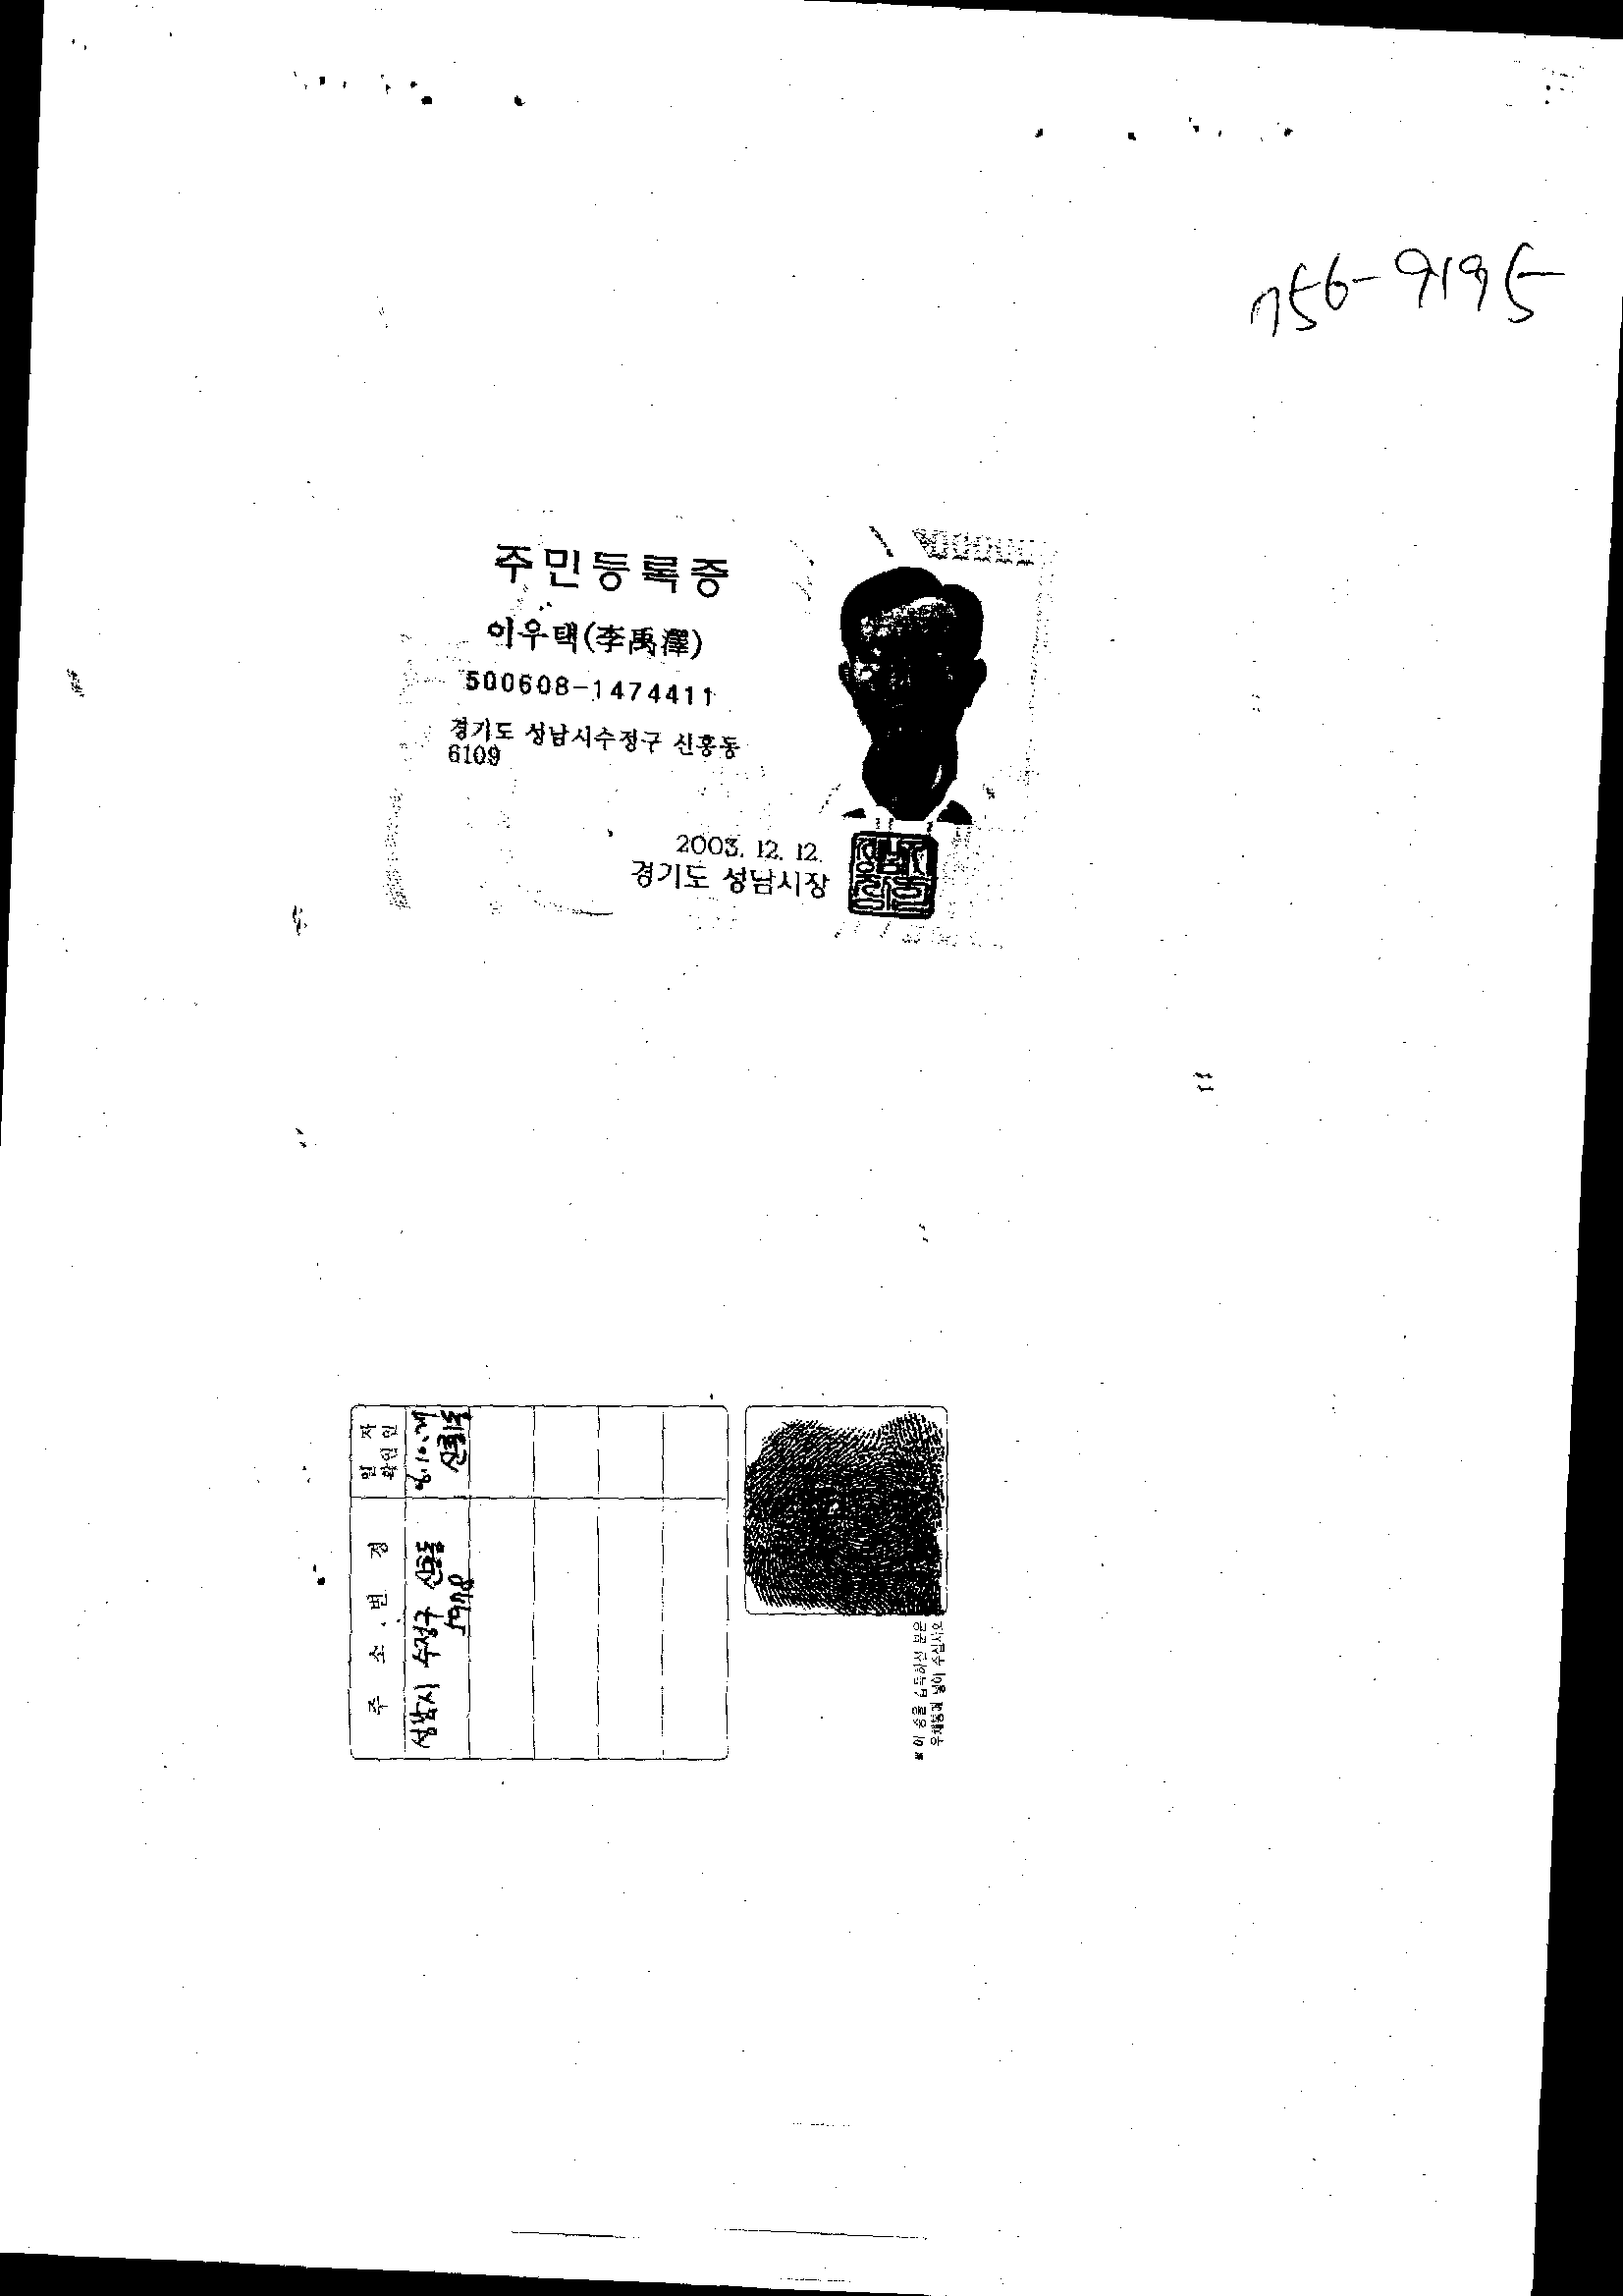 756-9195
주민등록증
이우택(李禹澤)
500608-1474411
경기도 성남시수정구 신흥동
6109
2003. 12. 12.
경기도 성남시장
주 소 변 경
일 자
확인인
성남시 수정구 신흥동
5978
※ 이 증을 습득하신 분은
우체통에 넣어 주십시오